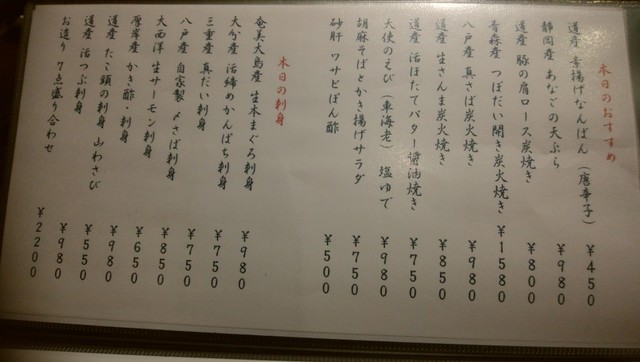 本日のおすすめ
道産 素揚げなんばん（唐辛子） ￥450
静岡産 あなごの天ぷら ￥980
道産 豚の肩ロース炭焼き ￥800
青森産 つぼだい開き炭火焼き ￥1580
八戸産 真さば炭火焼き ￥980
道産 生さんま炭火焼き ￥850
道産 活ほたてバター醤油焼き ￥750
天使のえび（車海老）塩ゆで ￥980
胡麻そばとかき揚げサラダ ￥750
砂肝 ワサビぽん酢 ￥500
本日の刺身
奄美大島産 生本まぐろ刺身 ￥980
大分産 活〆めかんぱち刺身 ￥750
三重産 真だい刺身 ￥750
八戸産 自家製〆さば刺身 ￥750
大西洋 生サーモン刺身 ￥850
厚岸産 かき酢・刺身 ￥650
道産 たこ頭の刺身 山わさび ￥980
道産 活つぶ刺身 ￥550
お造り 7点盛り合わせ ￥980
￥2200